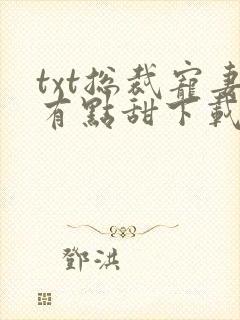 txt總裁寵妻
有點甜下載
鄧洪